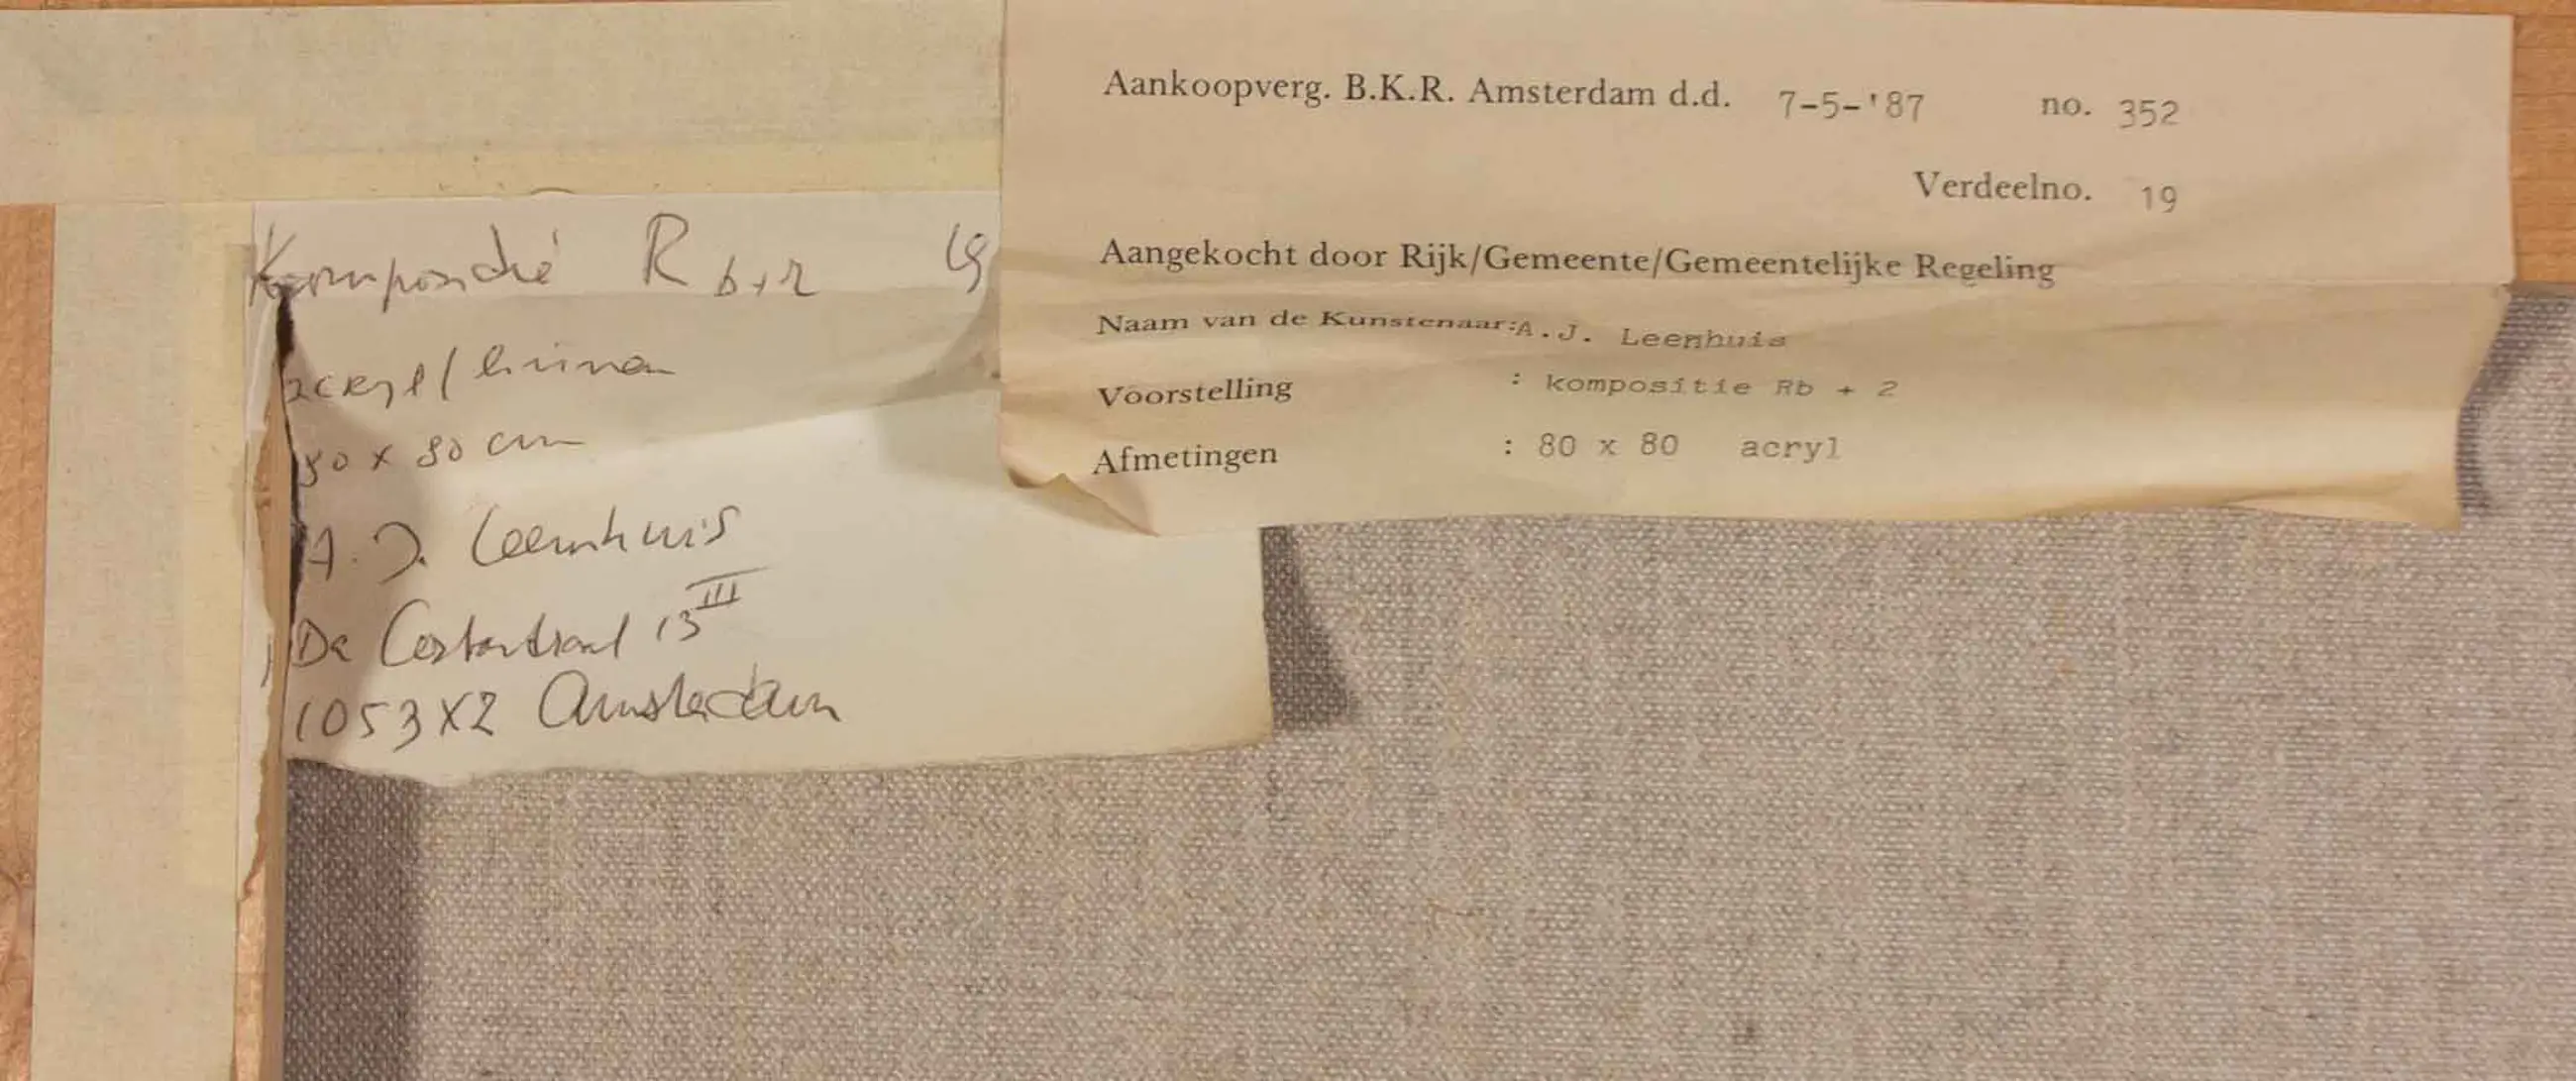 Kompositie R b+2 19
acryl/linnen
80 x 80 cm
A. J. Leemhuis
Da Costastraat 13 III
1053 XZ Amsterdam
Aankoopverg. B.K.R. Amsterdam d.d. 7-5-'87 no. 352
Verdeelno. 19
Aangekocht door Rijk/Gemeente/Gemeentelijke Regeling
Naam van de Kunstenaar:A.J. Leemhuis
Voorstelling : kompositie Rb + 2
Afmetingen : 80 x 80 acryl